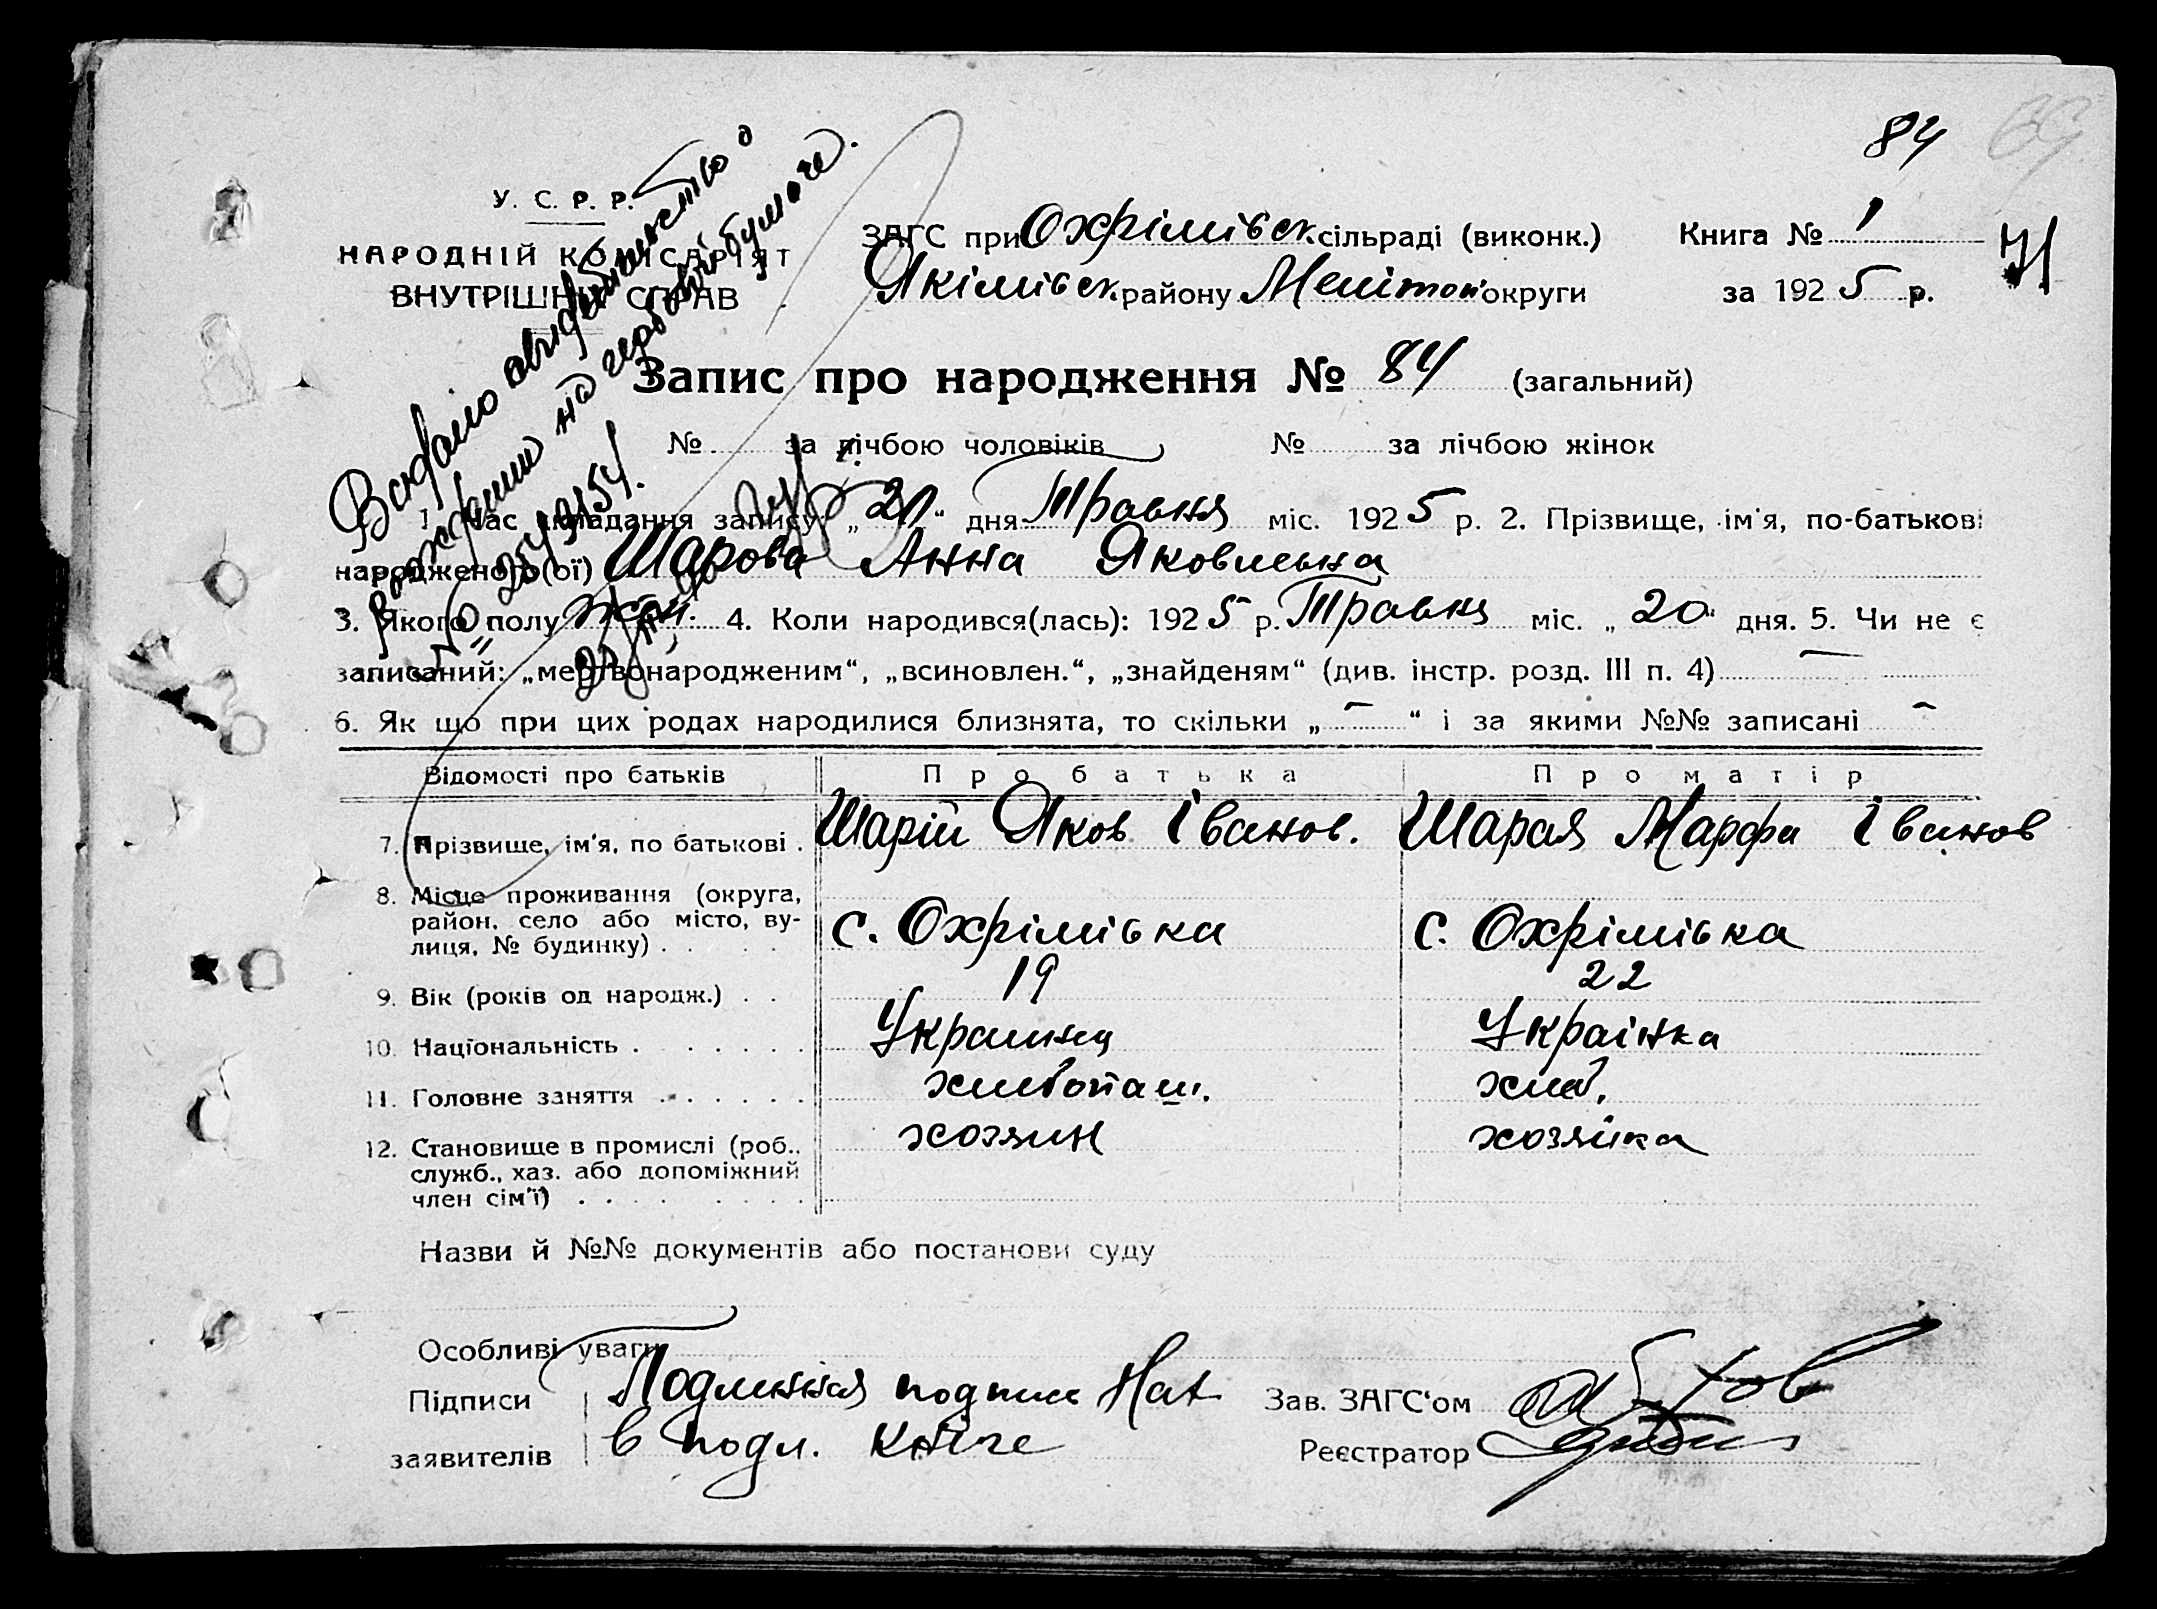 84
69
У. С. Р. Р.
НАРОДНІЙ КОМІСАРІЯТ
ВНУТРІШНІХ СПРАВ
ЗАГС при Охрімівск. сільраді (виконк.) Книга № 1
71
Якімівск. району Мелітоп. округи за 1925 р.
Запис про народження № 84 (загальний)
№ за лічбою чоловіків № за лічбою жінок
Видано свидетельство о
рождении на гербовой бумаге.
1. Час складання запису „20“ дня Травня міс. 1925 р. 2. Прізвище, ім'я, по-батькові
народженого(ої) Шарова Анна Яковлевна
3. Якого полу жен. 4. Коли народився(лась): 1925 р. Травня міс. „20“ дня. 5. Чи не є
записаний: „мертвонародженим“, „всиновлен.“, „знайденям“ (див. інстр. розд. III п. 4) —
6. Як що при цих родах народилися близнята, то скільки „ — “ і за якими №№ записані —
Відомості про батьків Про батька Про матір
7. Прізвище, ім'я, по батькові . Шарій Яков Іванов. Шарая Марфа Іванов
8. Місце проживання (округа,
район, село або місто, ву-
лиця, № будинку) . . . . с. Охрімівка с. Охрімівка
9. Вік (років од народж.) . . 19 22
10. Національність . . . . . . Украинц Українка
11. Головне заняття . . . . . . хлибопаш. хлеб.
12. Становище в промислі (роб.,
служб., хаз. або допоміжний
член сім'ї) . . . . . . . хозяин хозяйка
Назви й №№ документів або постанови суду
Особливі уваги
Підписи
заявителів
Подлинная подпись
в подл. книге
Зав. ЗАГС'ом
Реєстратор